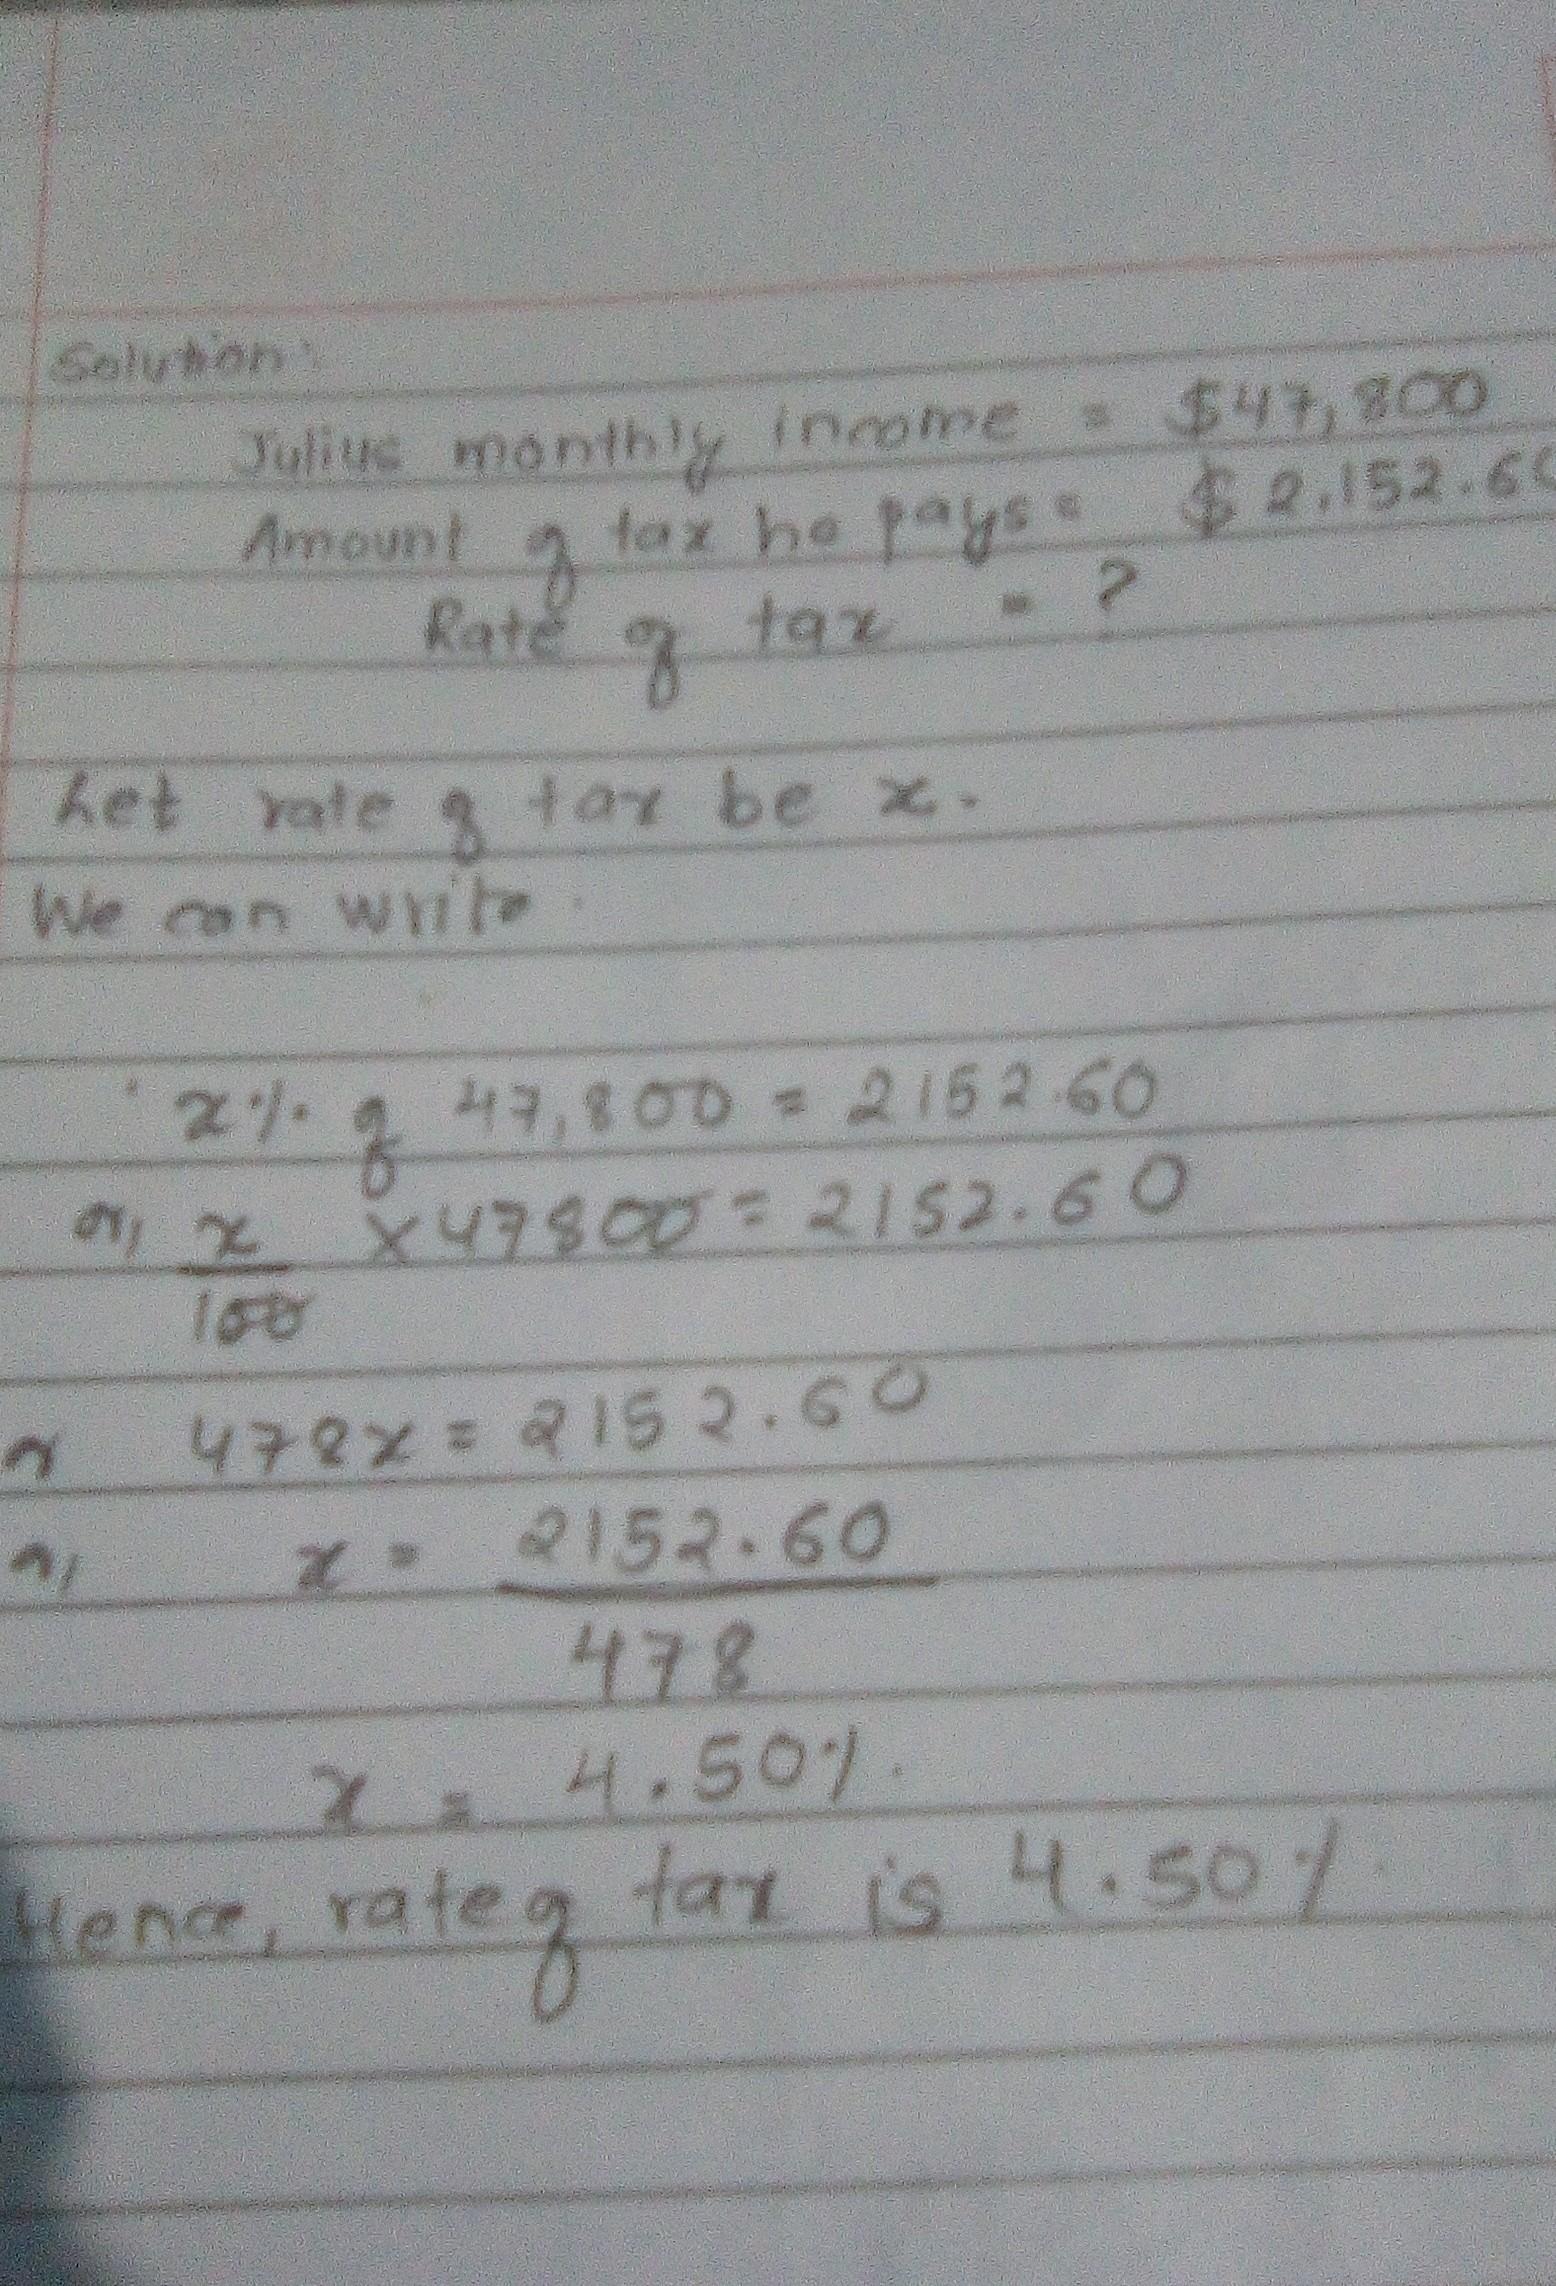 Solution:
Julius monthly income = $47,800
Amount of tax he pays = $2,152.60
Rate of tax = ?
Let rate of tax be x.
We can write.
x% of 47,800 = 2152.60
or, x/100 × 47800 = 2152.60
or 478x = 2152.60
or, x = 2152.60/478
x = 4.50%.
Hence, rate of tax is 4.50%.